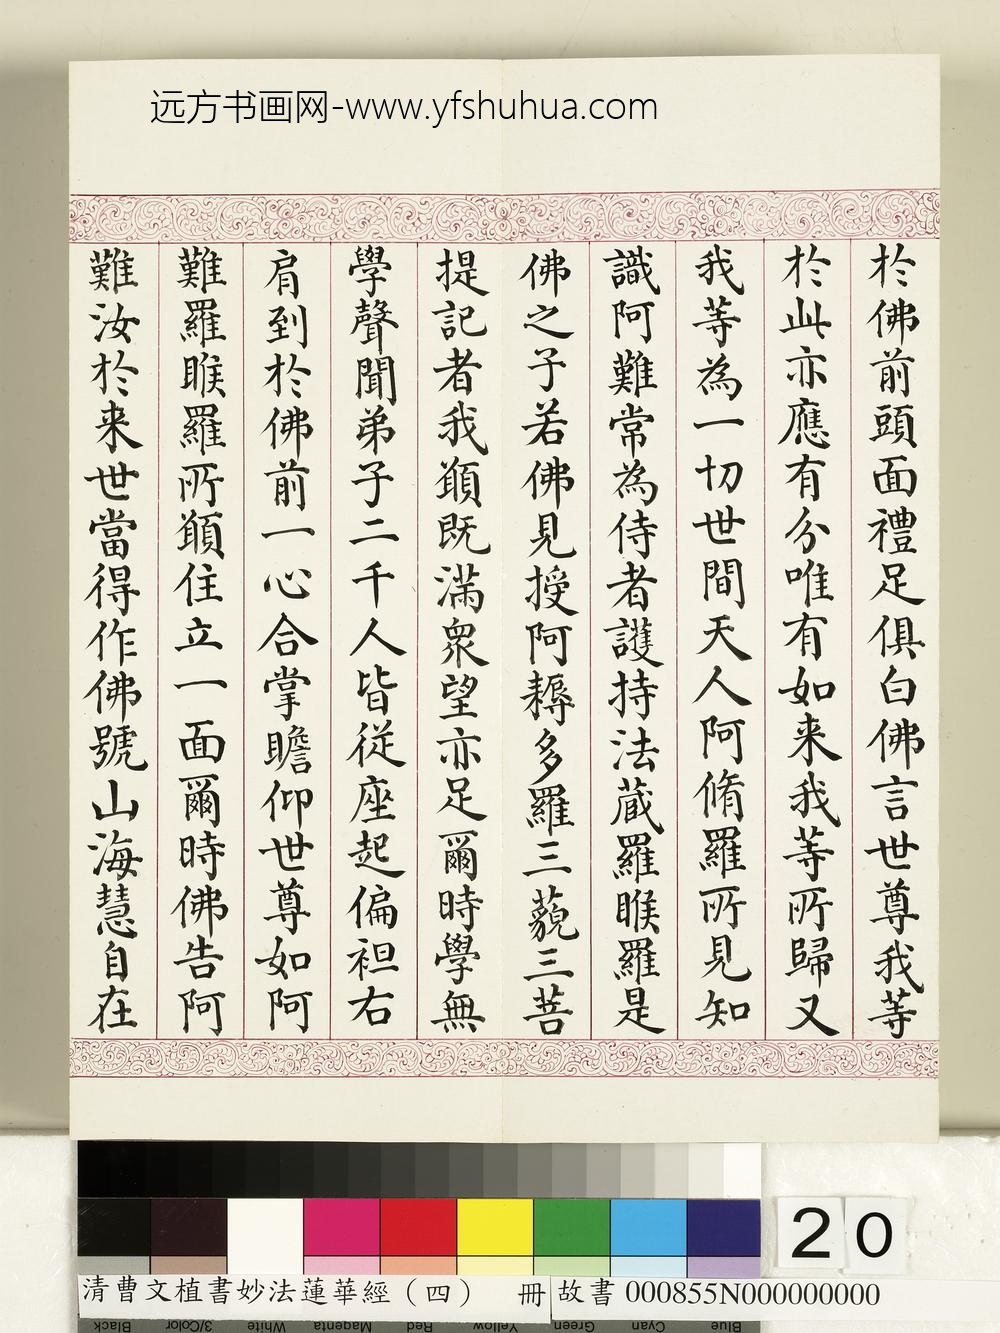 远方书画网-www.yfshuhua.com
於佛前頭面禮足俱白佛言世尊我等
於此亦應有分唯有如来我等所歸又
我等為一切世間天人阿脩羅所見知
識阿難常為侍者護持法藏羅睺羅是
佛之子若佛見授阿耨多羅三藐三菩
提記者我願既滿衆望亦足爾時學無
學聲聞弟子二千人皆從座起偏袒右
肩到於佛前一心合掌瞻仰世尊如阿
難羅睺羅所願住立一面爾時佛告阿
難汝於来世當得作佛號山海慧自在
20
清曹文植書妙法蓮華經（四） 冊
故書 000855N000000000
Black 3/Color White Magenta Red Yellow Green Cyan Blue